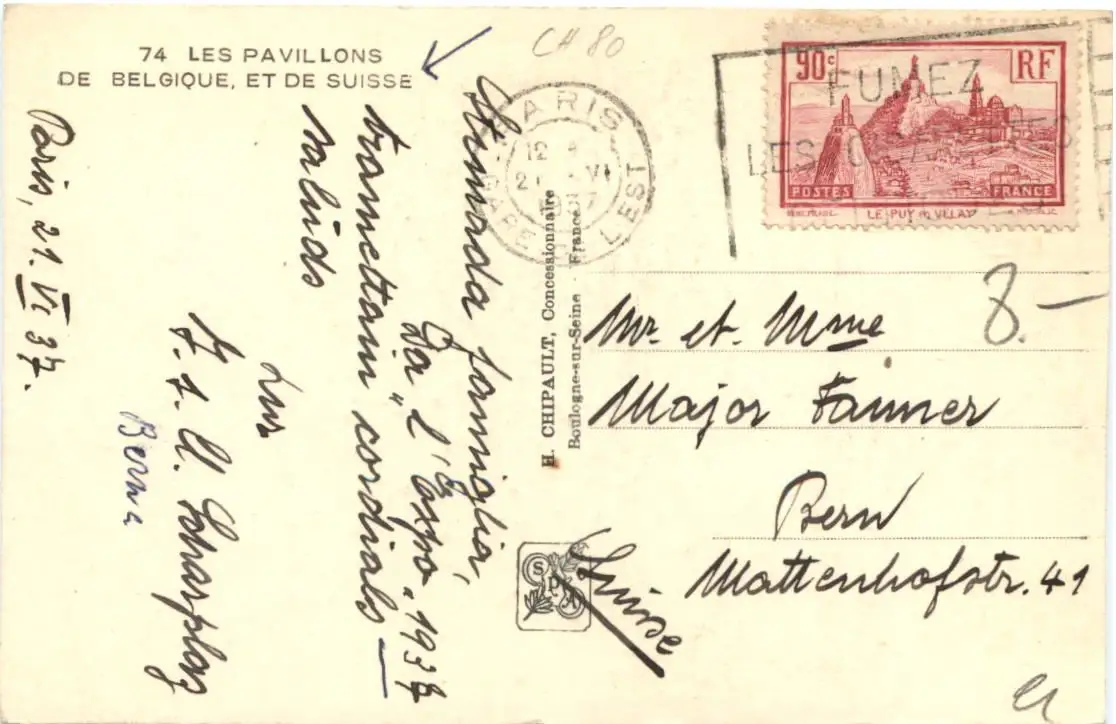 74 LES PAVILLONS
DE BELGIQUE, ET DE SUISSE
CH 80
Paris, 21. VI 37.
Stimada famiglia,
Da „l'Expo„ 1937
tramettain cordials
salüds
Lur
Berna
H. CHIPAULT, Concessionnaire
Boulogne-sur-Seine - France
PARIS
GARE DE L'EST
90c RF
POSTES FRANCE
LE PUY EN VELAY
FUMEZ
LES
8.—
Mr et Mme
Major Fanner
Bern
Mattenhofstr. 41
Suisse
SPA